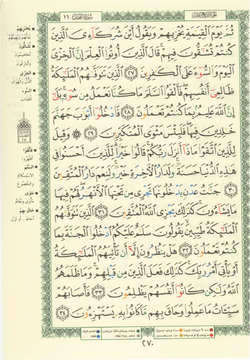 ثُمَّ يَوْمَ الْقِيَامَةِ يُخْزِيهِمْ وَيَقُولُ أَيْنَ شُرَكَائِيَ الَّذِينَ
كُنتُمْ تُشَاقُّونَ فِيهِمْ قَالَ الَّذِينَ أُوتُوا الْعِلْمَ إِنَّ الْخِزْيَ
الْيَوْمَ وَالسُّوءَ عَلَى الْكَافِرِينَ ٢٧ الَّذِينَ تَتَوَفَّاهُمُ الْمَلَائِكَةُ
ظَالِمِي أَنفُسِهِمْ فَأَلْقَوُا السَّلَمَ مَا كُنَّا نَعْمَلُ مِن سُوءٍ بَلَى
إِنَّ اللَّهَ عَلِيمٌ بِمَا كُنتُمْ تَعْمَلُونَ ٢٨ فَادْخُلُوا أَبْوَابَ جَهَنَّمَ
خَالِدِينَ فِيهَا فَلَبِئْسَ مَثْوَى الْمُتَكَبِّرِينَ ٢٩ وَقِيلَ
لِلَّذِينَ اتَّقَوْا مَاذَا أَنزَلَ رَبُّكُمْ قَالُوا خَيْرًا لِّلَّذِينَ أَحْسَنُوا فِي
هَذِهِ الدُّنْيَا حَسَنَةٌ وَلَدَارُ الْآخِرَةِ خَيْرٌ وَلَنِعْمَ دَارُ الْمُتَّقِينَ
٣٠ جَنَّاتُ عَدْنٍ يَدْخُلُونَهَا تَجْرِي مِن تَحْتِهَا الْأَنْهَارُ لَهُمْ فِيهَا
مَا يَشَاءُونَ كَذَلِكَ يَجْزِي اللَّهُ الْمُتَّقِينَ ٣١ الَّذِينَ تَتَوَفَّاهُمُ
الْمَلَائِكَةُ طَيِّبِينَ يَقُولُونَ سَلَامٌ عَلَيْكُمُ ادْخُلُوا الْجَنَّةَ بِمَا
كُنتُمْ تَعْمَلُونَ ٣٢ هَلْ يَنظُرُونَ إِلَّا أَن تَأْتِيَهُمُ الْمَلَائِكَةُ
أَوْ يَأْتِيَ أَمْرُ رَبِّكَ كَذَلِكَ فَعَلَ الَّذِينَ مِن قَبْلِهِمْ وَمَا ظَلَمَهُمُ
اللَّهُ وَلَكِن كَانُوا أَنفُسَهُمْ يَظْلِمُونَ ٣٣ فَأَصَابَهُمْ
سَيِّئَاتُ مَا عَمِلُوا وَحَاقَ بِهِم مَّا كَانُوا بِهِ يَسْتَهْزِئُونَ ٣٤
٢٧٠